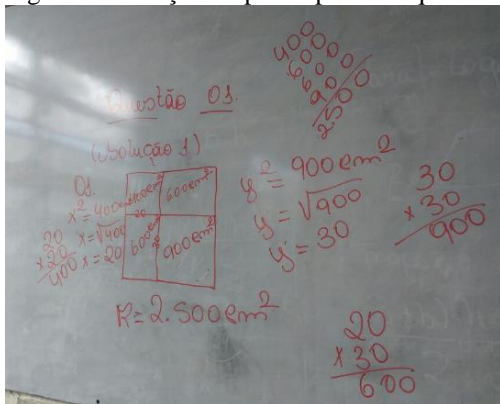 Questão 01.
(Solução 1)
01.
x² = 400cm²
x = √400
x = 20
20
x 20
400
400cm²
600cm²
20
600cm²
900cm²
R = 2.500cm²
400
600
600
900
2500
y² = 900cm²
y = √900
y = 30
30
x 30
900
20
x 30
600